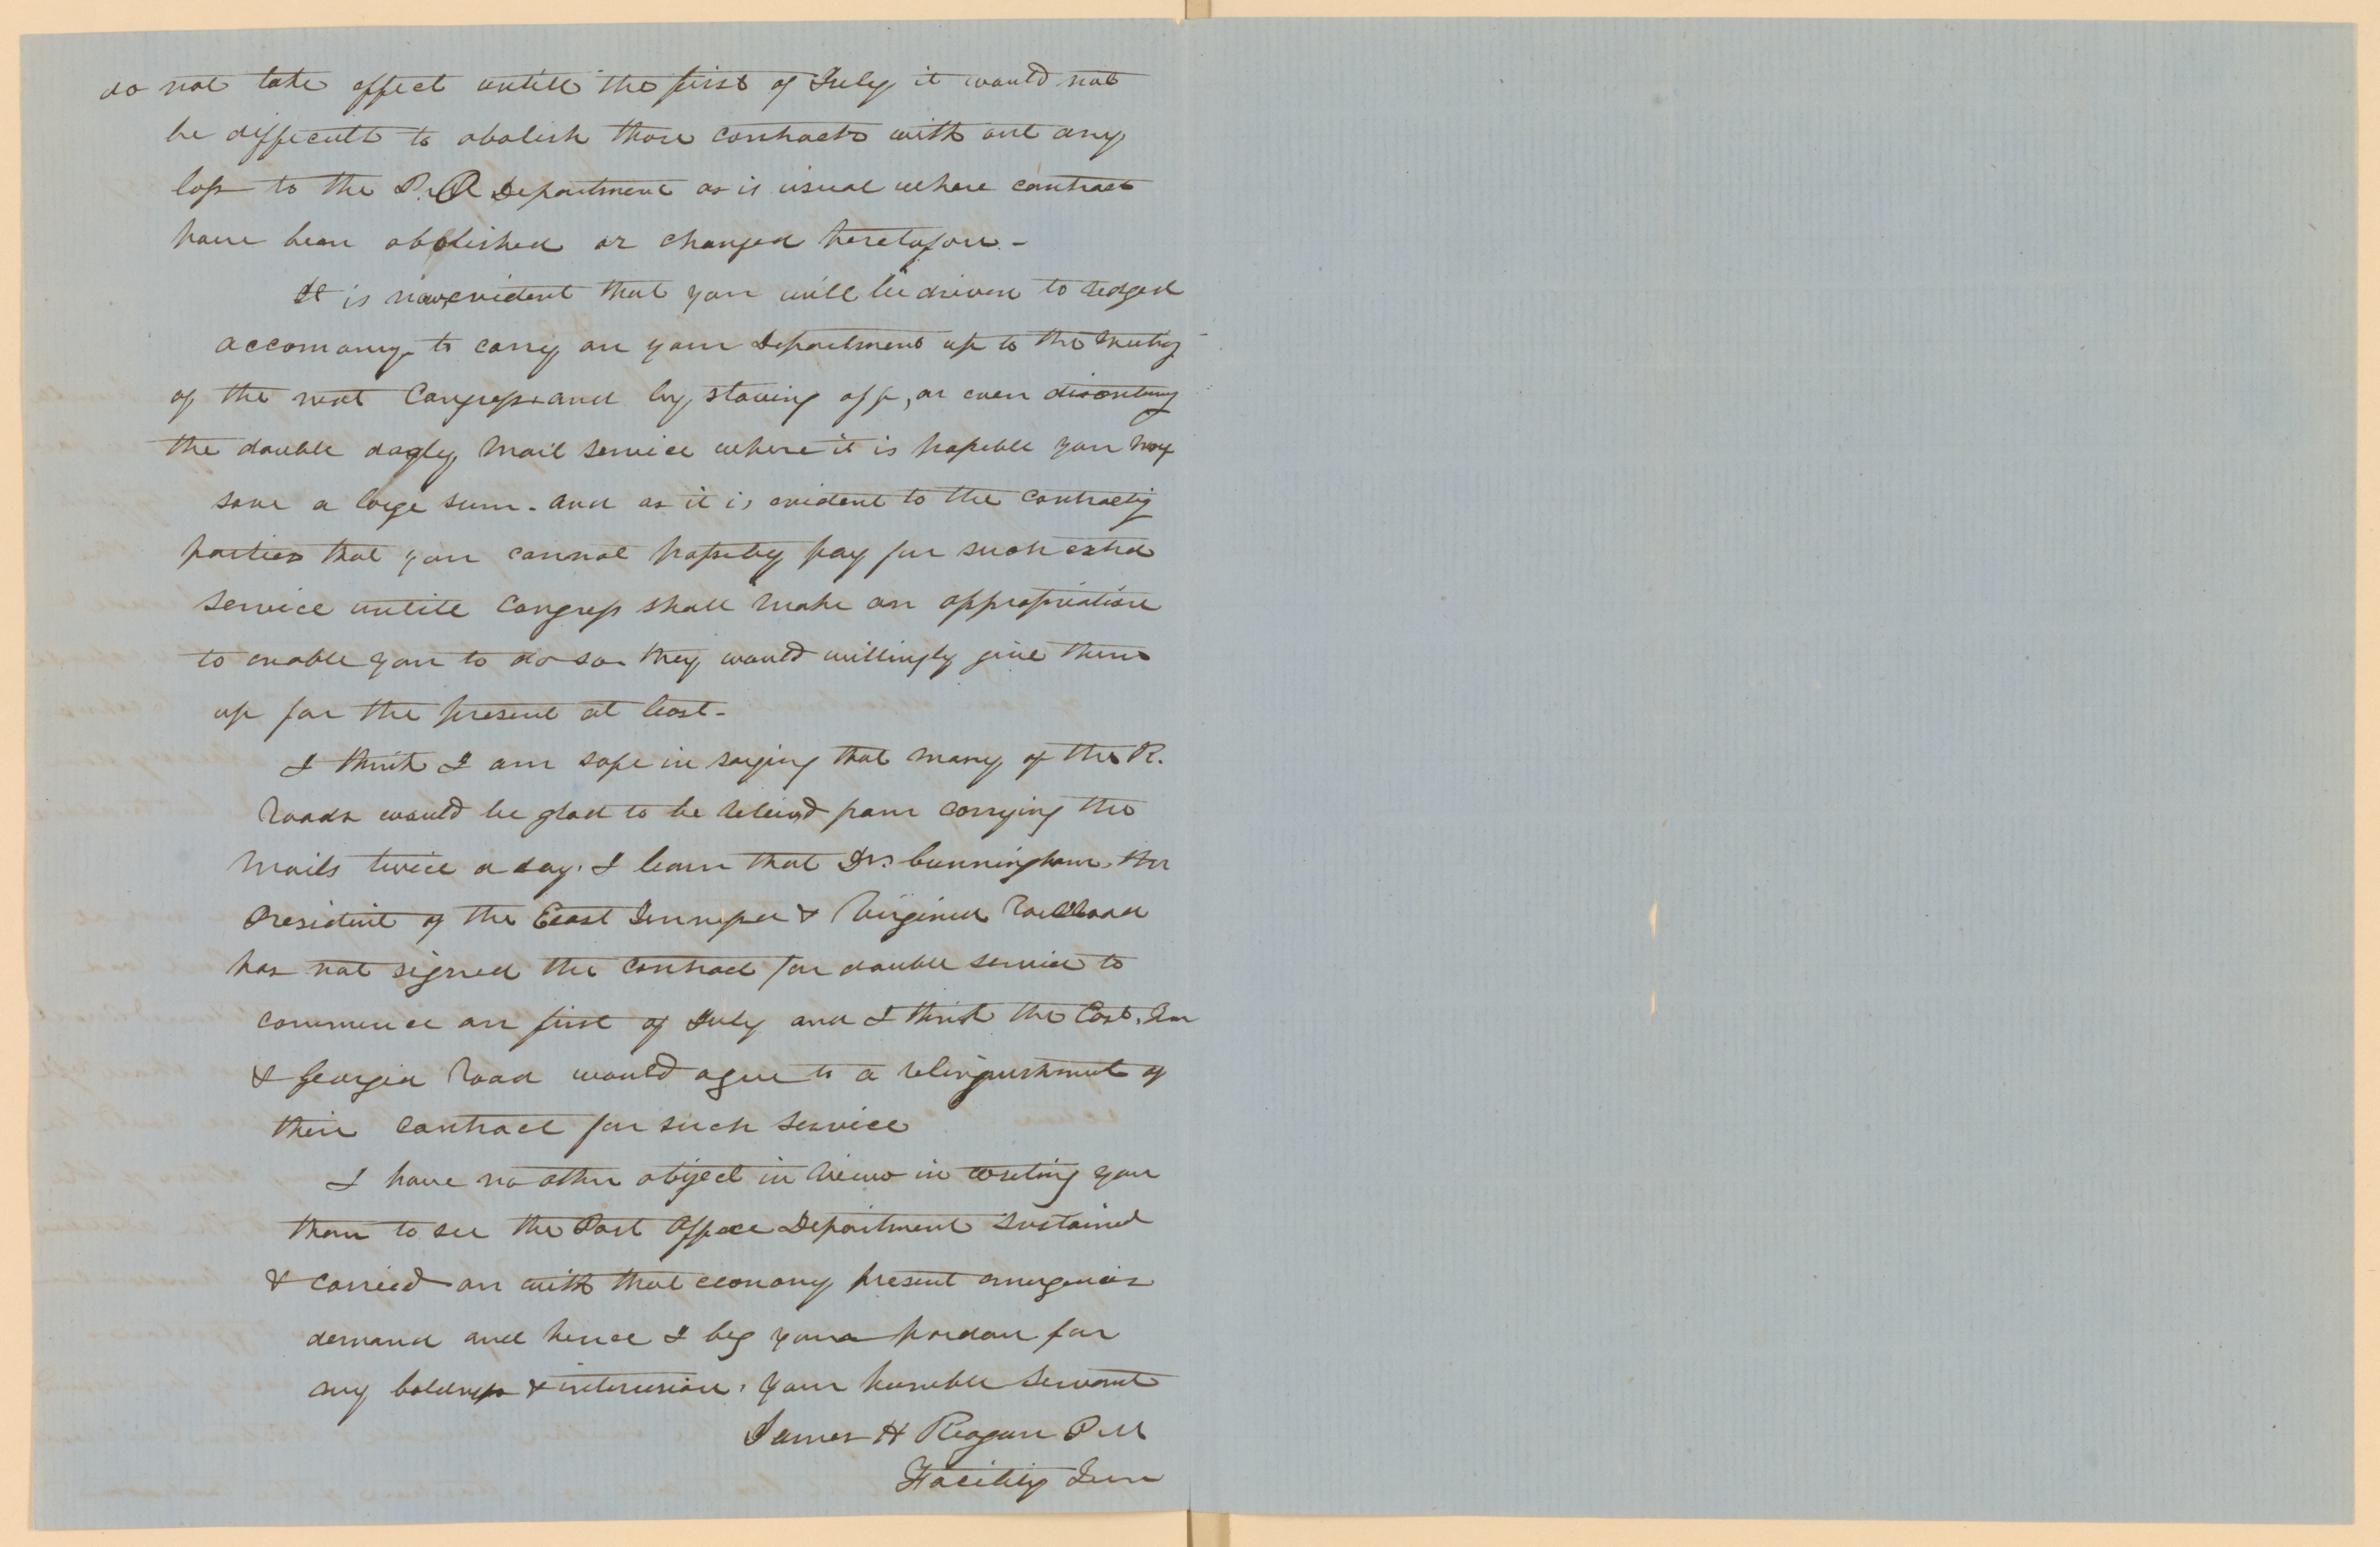 do not take effect untill the first of July it would not
be difficult to abolish those contracts with out any
loss to the P.O Department as is usual where contracts
have been abolished or changed heretofore.-
It is now evident that you will be driven to ridged
accomany to carry on your Department up to the meeting
of the next Congress and by staving off, or even discontinuing
the double dayly mail service where it is possible you may
save a large sum. and as it is evident to the contracting
parties that you cannot possibly pay for such extra
service untill Congress shall make an appropriation
to enable you to do so they would willingly give them
up for the present at least-
I think I am safe in saying that many of the R.
Roads would be glad to be relievd from carrying the
mails twice a day. I learn that Dr. Cunningham, the
President of the East Tennessee & Virginia Railroad
has not signed the contract for double service to
commence on first of July and I think the East. Ten
& Georgia Road would agree to a relinquishment of
their contract for such service
I have no other object in view in writing you
than to see the Post Office Department sustained
& carried on with that economy present emergencies
demand and hence I beg your pardon for
my boldness & intrusion. Your humble Servant
James H Reagan P.M
Facility Tenn